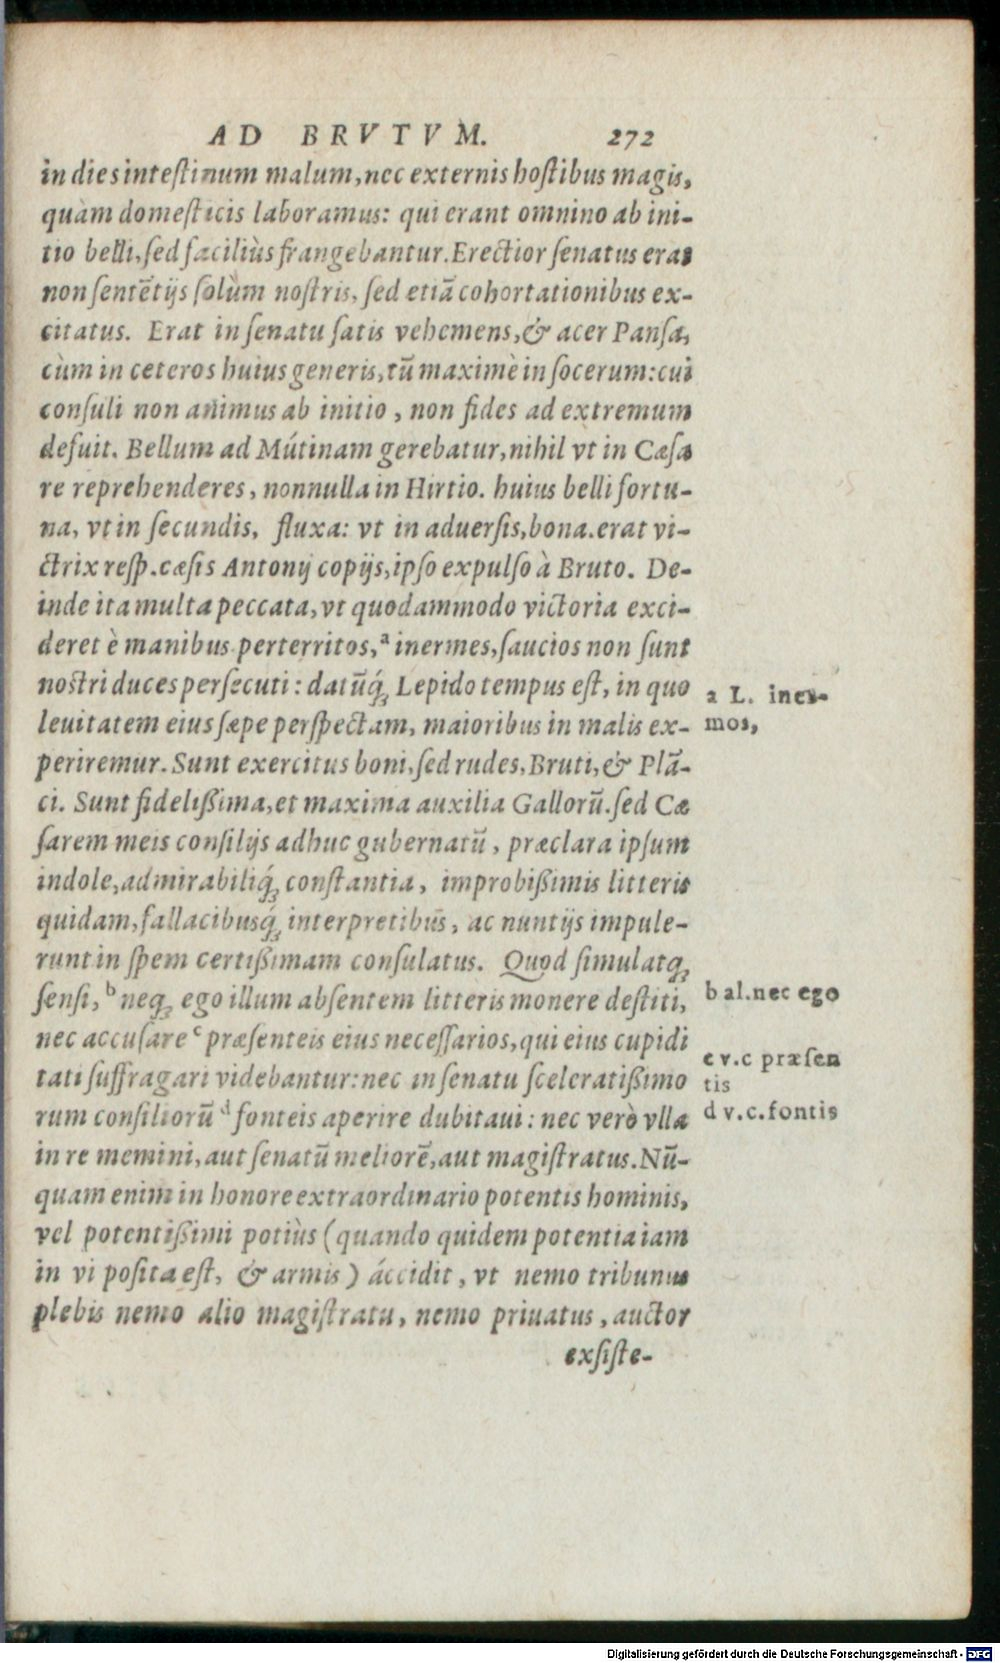 AD BRVTVM. 272
in dies intestinum malum, nec externis hostibus magis,
quàm domesticis laboramus: qui erant omnino ab ini-
tio belli, sed faciliùs frangebantur. Erectior senatus erat
non sentētijs solùm nostris, sed etiā cohortationibus ex-
citatus. Erat in senatu satis vehemens, & acer Pansa,
cùm in ceteros huius generis, tū maximè in socerum: cui
consuli non animus ab initio, non fides ad extremum
defuit. Bellum ad Mútinam gerebatur, nihil vt in Cæsa
re reprehenderes, nonnulla in Hirtio. huius belli fortu-
na, vt in secundis, fluxa: vt in aduersis, bona. erat vi-
ctrix resp. cæsis Antonij copijs, ipso expulso à Bruto. De-
inde ita multa peccata, vt quodammodo victoria exci-
deret è manibus perterritos, ᵃ inermes, saucios non sunt
nostri duces persecuti: datūq́; Lepido tempus est, in quo
leuitatem eius sæpe perspectam, maioribus in malis ex-
periremur. Sunt exercitus boni, sed rudes, Bruti, & Plā-
ci. Sunt fidelißima, et maxima auxilia Gallorū. sed Cæ
sarem meis consilijs adhuc gubernatū, præclara ipsum
indole, admirabiliq́; constantia, improbißimis litteris
quidam, fallacibusq́; interpretibus, ac nuntijs impule-
runt in spem certißimam consulatus. Quod simulatq;
sensi, ᵇ neq; ego illum absentem litteris monere destiti,
nec accusare ᶜ præsenteis eius necessarios, qui eius cupidi
tati suffragari videbantur: nec in senatu sceleratißimo
rum consiliorū ᵈ fonteis aperire dubitaui: nec verò vlla
in re memini, aut senatū meliorē, aut magistratus. Nū-
quam enim in honore extraordinario potentis hominis,
vel potentißimi potiùs (quando quidem potentia iam
in vi posita est, & armis) áccidit, vt nemo tribunus
plebis nemo alio magistratu, nemo priuatus, auctor
exsiste-
a L. iner-
mos,
b al. nec ego
c v.c præsen
tis
d v.c. fontis
Digitalisierung gefördert durch die Deutsche Forschungsgemeinschaft - DFG